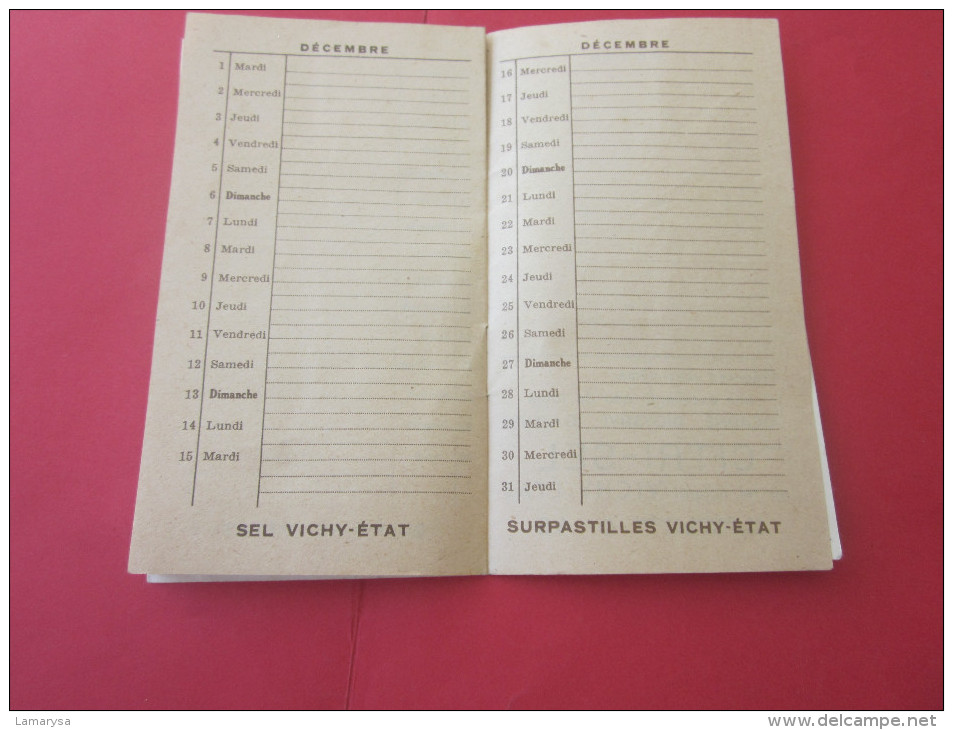 DÉCEMBRE
1 Mardi
2 Mercredi
3 Jeudi
4 Vendredi
5 Samedi
6 Dimanche
7 Lundi
8 Mardi
9 Mercredi
10 Jeudi
11 Vendredi
12 Samedi
13 Dimanche
14 Lundi
15 Mardi
SEL VICHY-ÉTAT
DÉCEMBRE
16 Mercredi
17 Jeudi
18 Vendredi
19 Samedi
20 Dimanche
21 Lundi
22 Mardi
23 Mercredi
24 Jeudi
25 Vendredi
26 Samedi
27 Dimanche
28 Lundi
29 Mardi
30 Mercredi
31 Jeudi
SURPASTILLES VICHY-ÉTAT
Lamarysa
www.delcampe.net